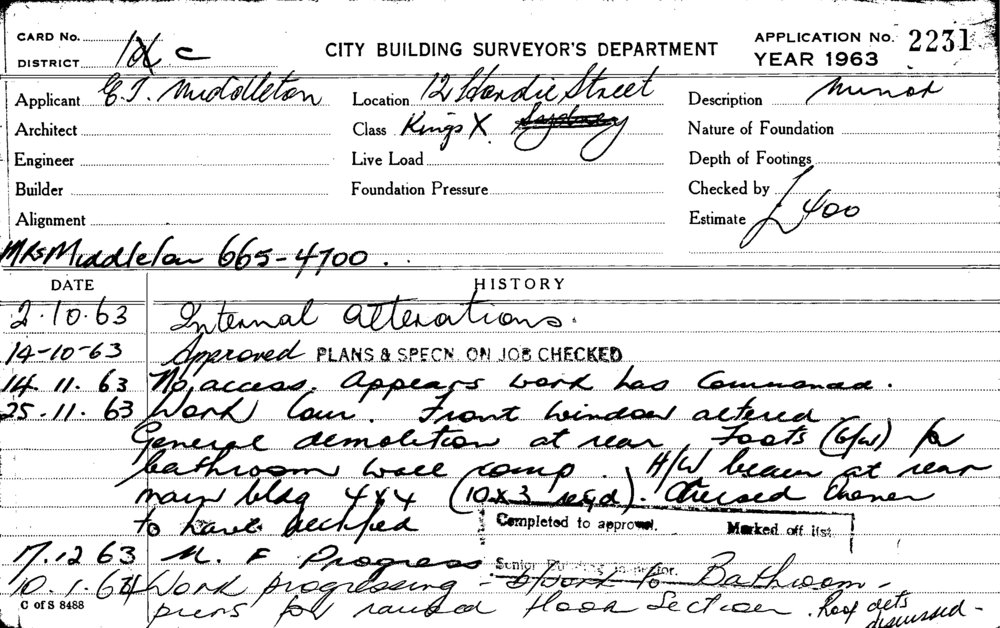 CARD No.
DISTRICT IX C
CITY BUILDING SURVEYOR'S DEPARTMENT
APPLICATION No. 2231
YEAR 1963
Applicant E.J. Middleton
Location 12 Hardie Street
Description Minor
Architect
Class Kings X. Sydney
Nature of Foundation
Engineer
Live Load
Depth of Footings
Builder
Foundation Pressure
Checked by
Alignment
Estimate £400
Mrs Middleton 665-4700
DATE HISTORY
2.10.63 Internal alterations.
14-10-63 Approved PLANS & SPECN. ON JOB CHECKED
14.11.63 No access. Appears work has commenced.
25.11.63 Work Com. Front window altered
General demolition at rear. Foots (b/w) for
bathroom wall comp. H/W beam at rear
main bldg 4x4 (10x3 reqd). Advised Owner
to have rectified
Completed to approval. Marked off list.
17.12.63 M. F Progress
Senior Building Inspector.
10.1.64 Work progressing - b/work to Bathroom -
piers for raised floor section. Roof dets
discussed -
C of S 8488